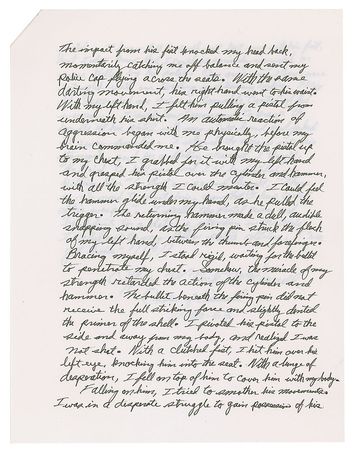 The impact from his fist knocked my head back,
momentarily catching me off balance and sent my
police cap flying across the seats. With the same
darting movement, his right hand went to his waist.
With my left hand, I felt him pulling a pistol from
underneath his shirt. An automatic reaction of
aggression began with me physically, before my
brain commanded me. As he brought the pistol up
to my chest, I grabbed for it with my left hand
and grasped his pistol over the cylinder and hammer,
with all the strength I could muster. I could feel
the hammer glide under my hand, as he pulled the
trigger. The returning hammer made a dull, audible
snapping sound, as the firing pin struck the flesh
of my left hand, between the thumb and forefinger.
Bracing myself, I stood rigid, waiting for the bullet
to penetrate my chest. Somehow, the miracle of my
strength retarded the action of the cylinder and
hammer. The bullet beneath the firing pin did not
receive the full striking force and slightly dented
the primer of the shell. I pivoted his pistol to the
side and away from my body, and realized I was
not shot. With a clinched fist, I hit him over his
left eye, knocking him into the seat. With a lunge of
desperation, I fell on top of him to cover him with my body.
Falling on him, I tried to smother his movements.
I was in a desperate struggle to gain possession of his